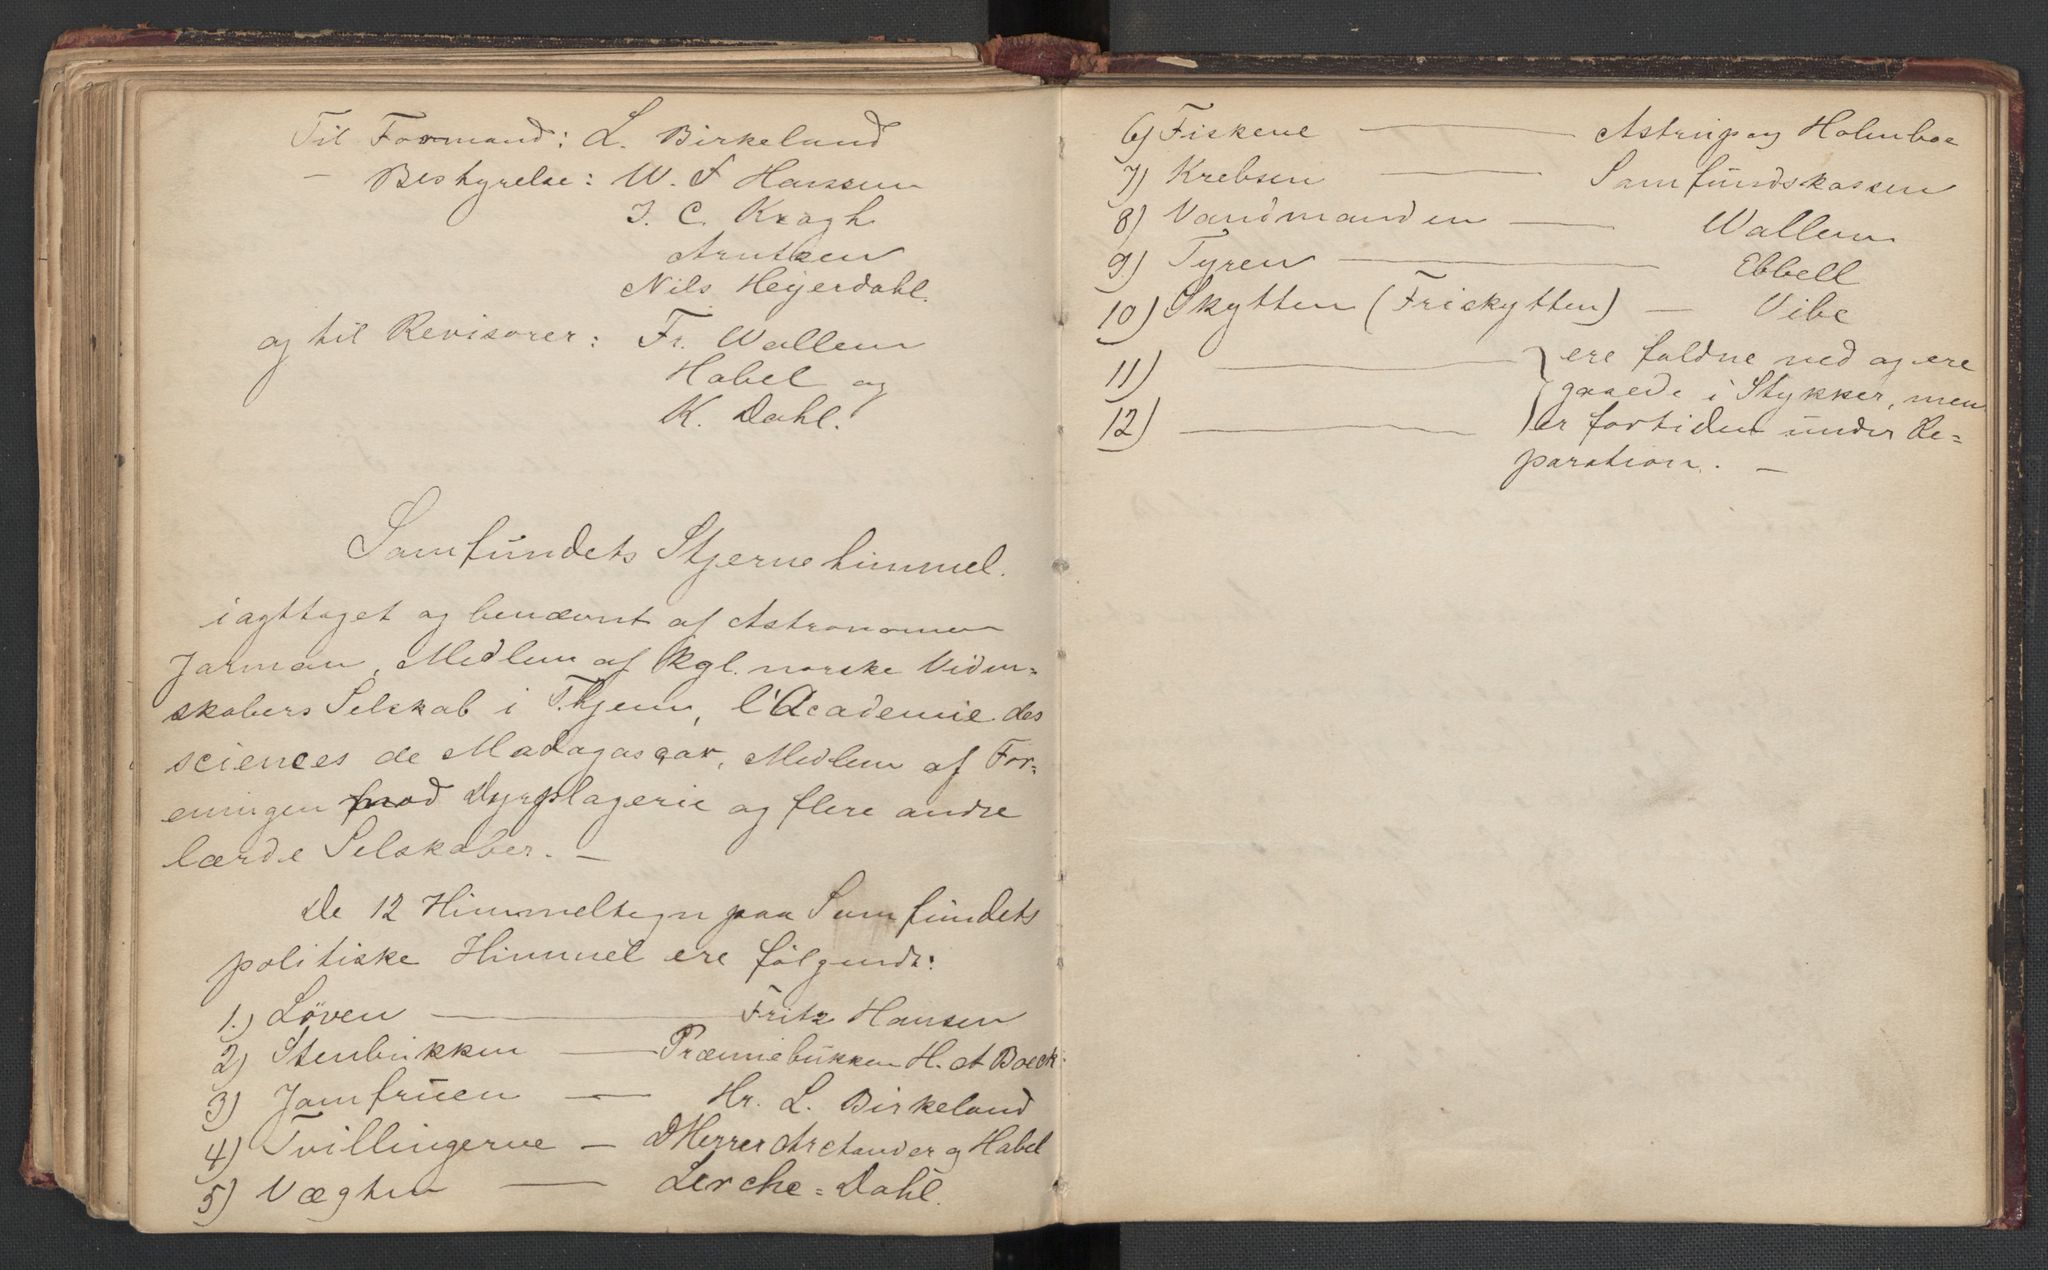 Til Formand: L. Birkeland
— Bestyrelse: W. F Hansen
J. C. Kragh
Arntzen
Nils Heyerdahl.
og til Revisorer: Fr. Wallem
Habel og
K. Dahl.
Samfundets Stjernehimmel.
iagttaget og benævnt af Astronomen
Jarman, Medlem af Kgl. norske Viden=
skabers Selskab i T.hjem, l'Academie des
sciences de Madagascar, Medlem af For=
eningen mod Dyrplageri og flere andre
lærde Selskaber. —
De 12 Himmeltegn paa Samfundets
politiske Himmel ere følgende:
1.) Løven — Fritz Hansen
2) Stenbukken — Præmiebukken H. A Boeck.
3) Jomfruen — Hr. L. Birkeland
4) Tvillingerne — D Herrer Arctander og Habel
5) Vægten — Lerche=Dahl.
6) Fiskene — Astrup og Holmboe
7) Krebsen — Samfundskassen
8) Vandmanden — Wallem
9) Tyren — Ebbell
10) Skytten (Friskytten) — Vibe
11) — } ere faldne ned og ere
gaaede i Stykker, men
12) — er fortiden under Re=
paration. —